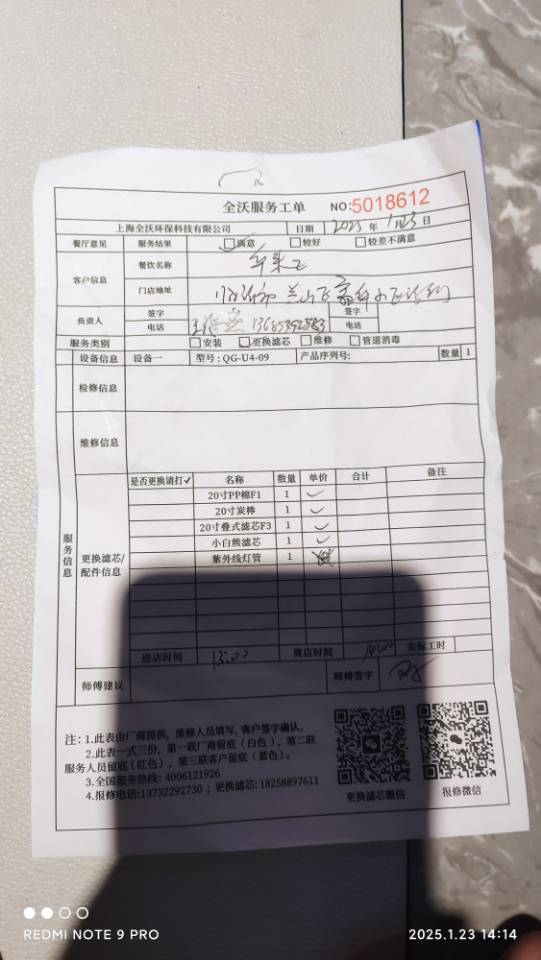 全沃服务工单 NO:5018612
上海全沃环保科技有限公司 日期 2025 年 1 23 日
餐厅意见 服务结果 满意 较好 较差不满意
客户信息 餐饮名称
门店地址
负责人 签字 签字
电话 电话
服务类别 安装 更换滤芯 维修 管道消毒
设备信息 设备一 型号:QG-U4-09 产品序列号: 数量 1
检修信息
维修信息
服务信息
更换滤芯/配件信息
是否更换请打✓ 名称 数量 单价 合计 备注
20寸PP棉F1 1 ✓
20寸炭棒 1 ✓
20寸叠式滤芯F3 1 ✓
小白熊滤芯 1 ✓
紫外线灯管 1
进店时间 13:00 离店时间 实际工时
师傅建议 师傅签字
注:1.此表由厂商提供,维修人员填写,客户签字确认。
2.此表一式三份,第一联厂商留底(白色),第二联
服务人员留底(红色),第三联客户留底(蓝色)。
3.全国服务热线: 4006121926
4.报修电话:13732292730 ; 更换滤芯: 18258897611
更换滤芯微信 报修微信
REDMI NOTE 9 PRO 2025.1.23 14:14